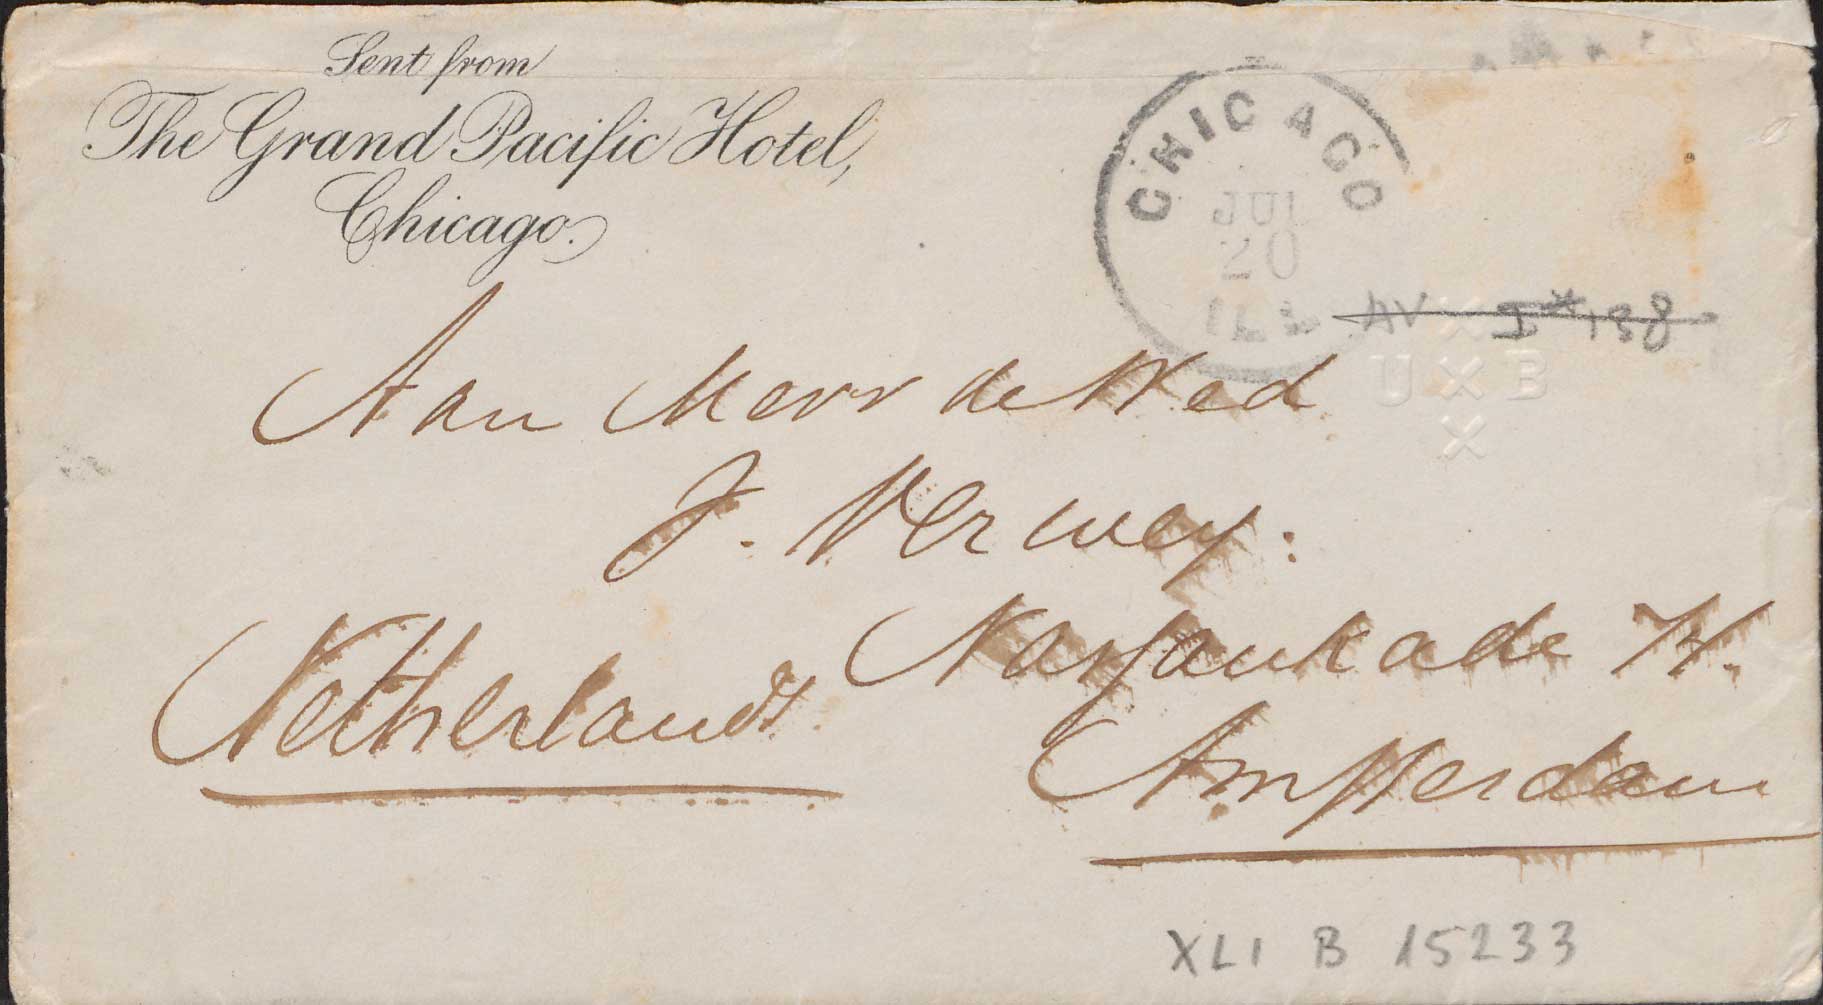 Sent from
The Grand Pacific Hotel,
Chicago.
CHICAGO
JUL
20
AV I* 138
U X B
Aan Mevr de Wed
J. Verwey:
Nassaukade H.
Netherlands.
Amsterdam
XLI B 15233